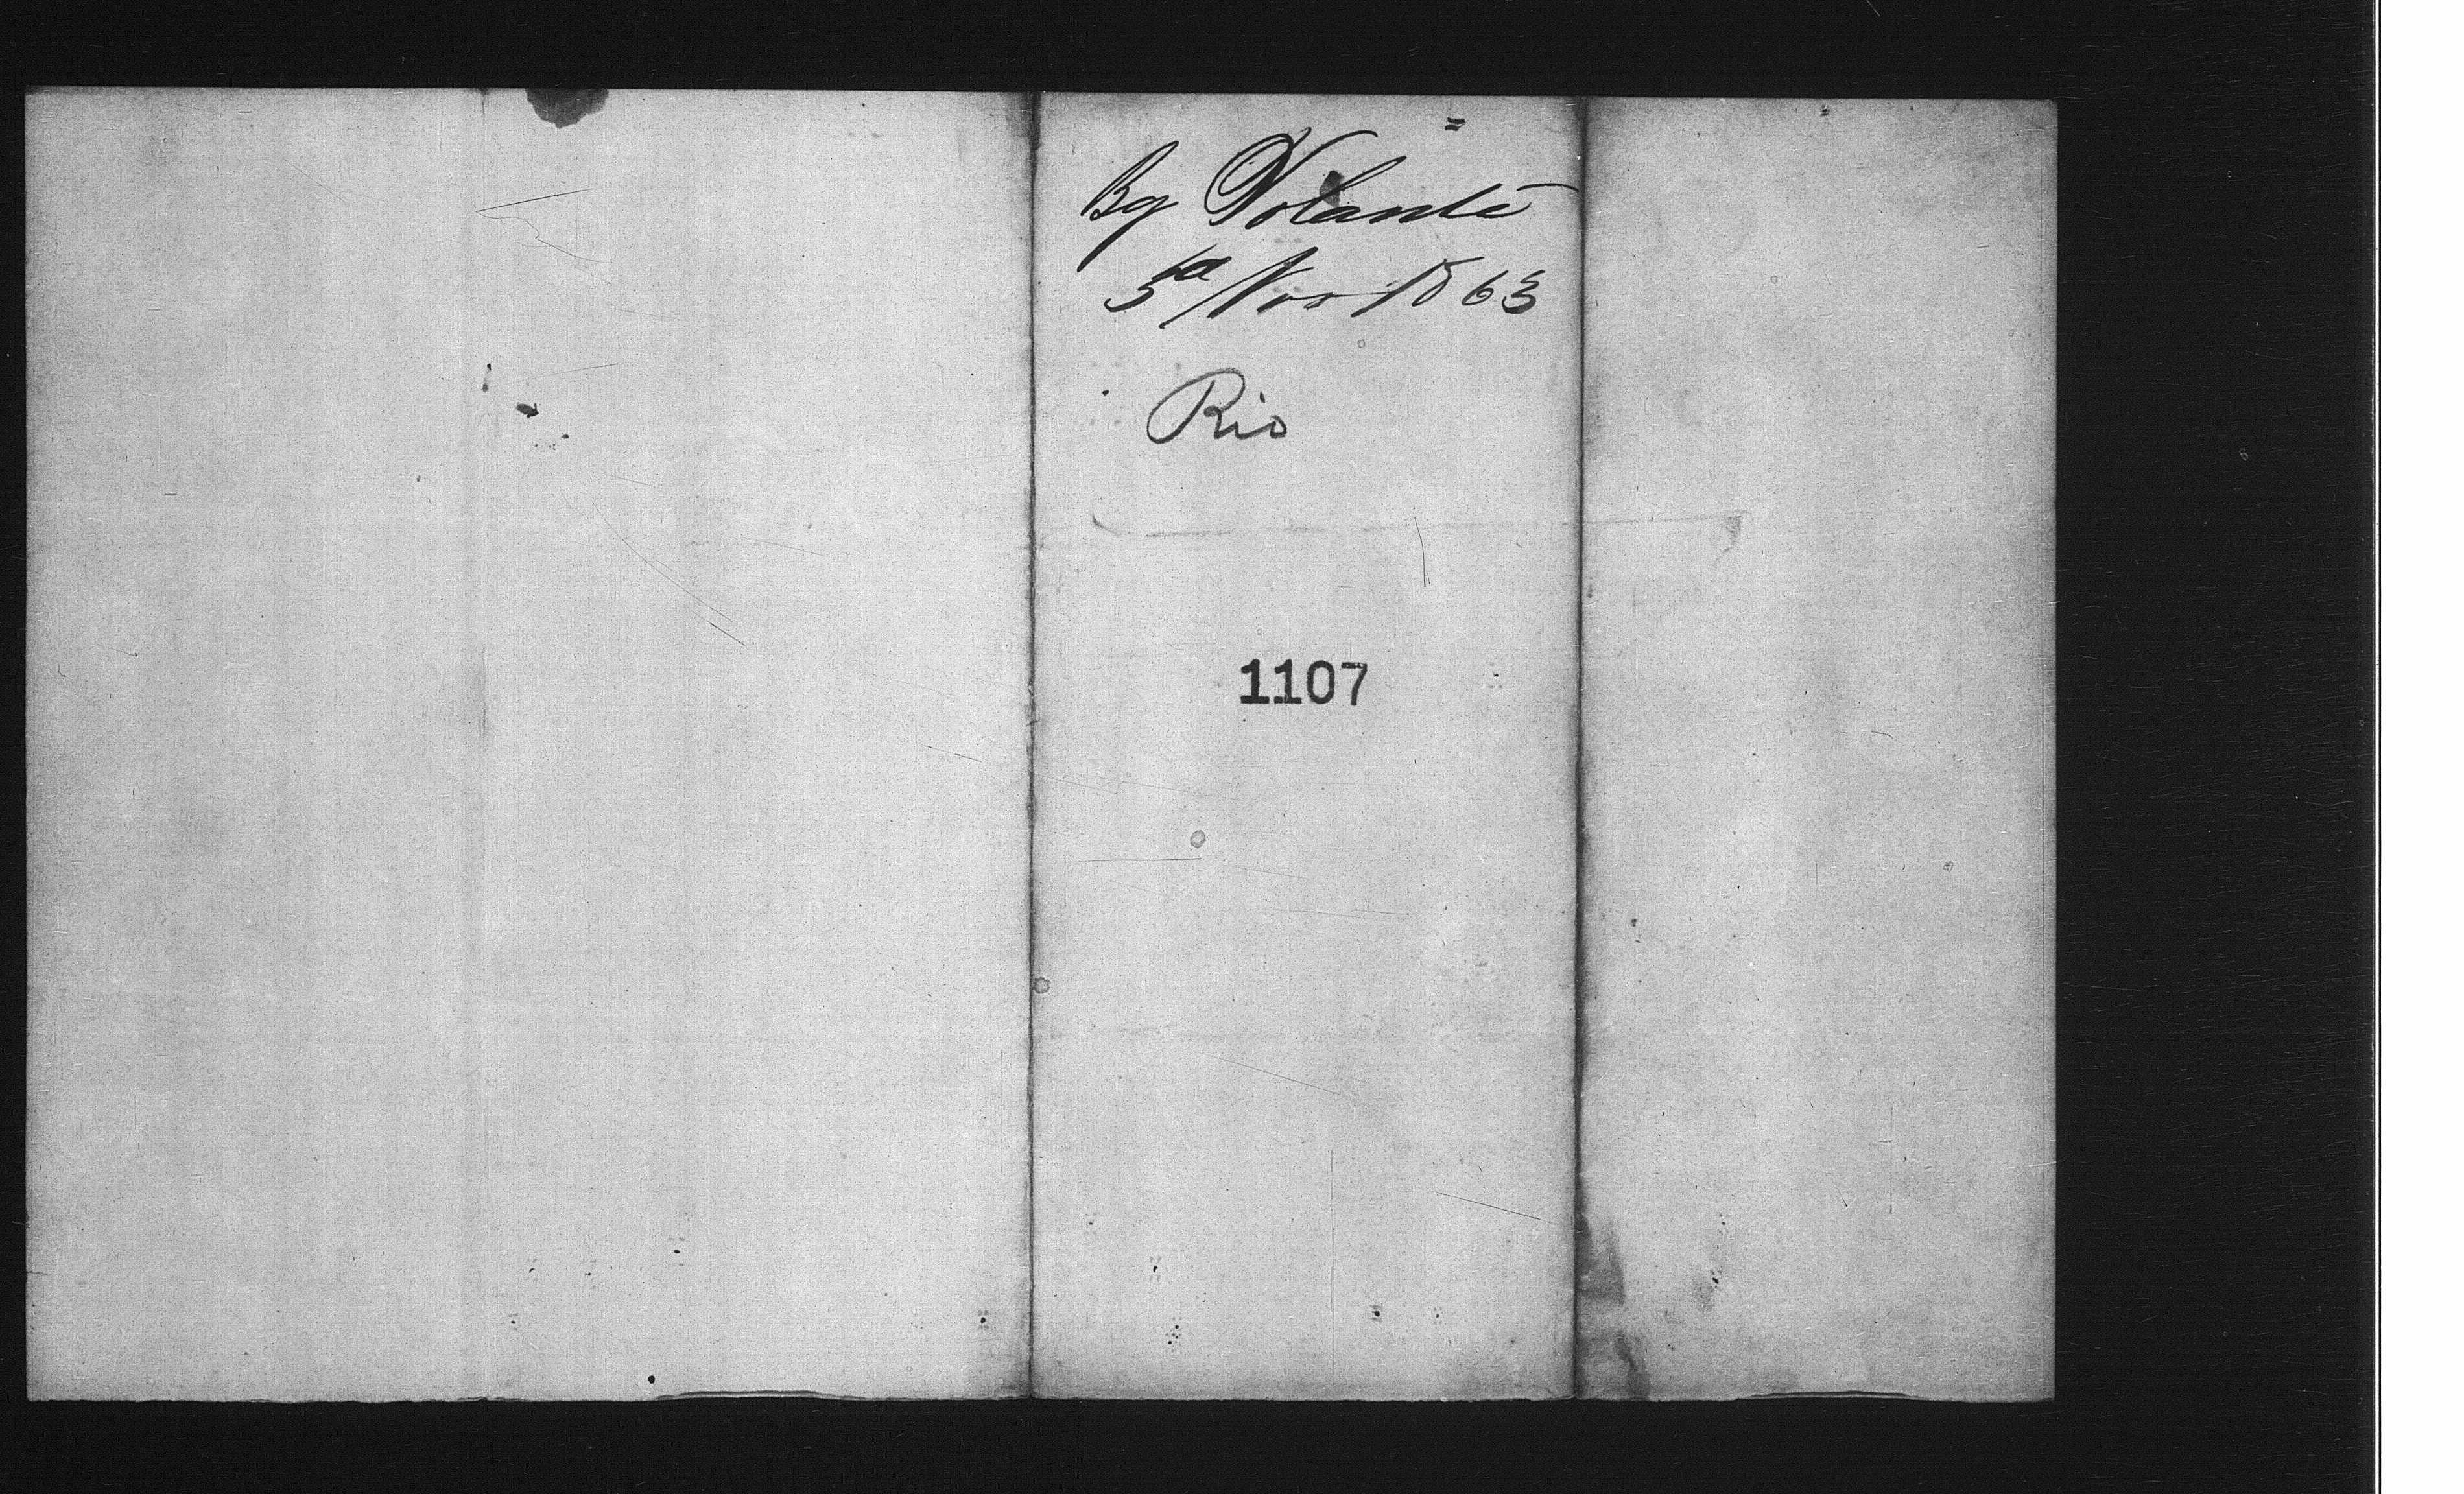 Bg Volante
5 a/ Nov 1863
Rio
1107